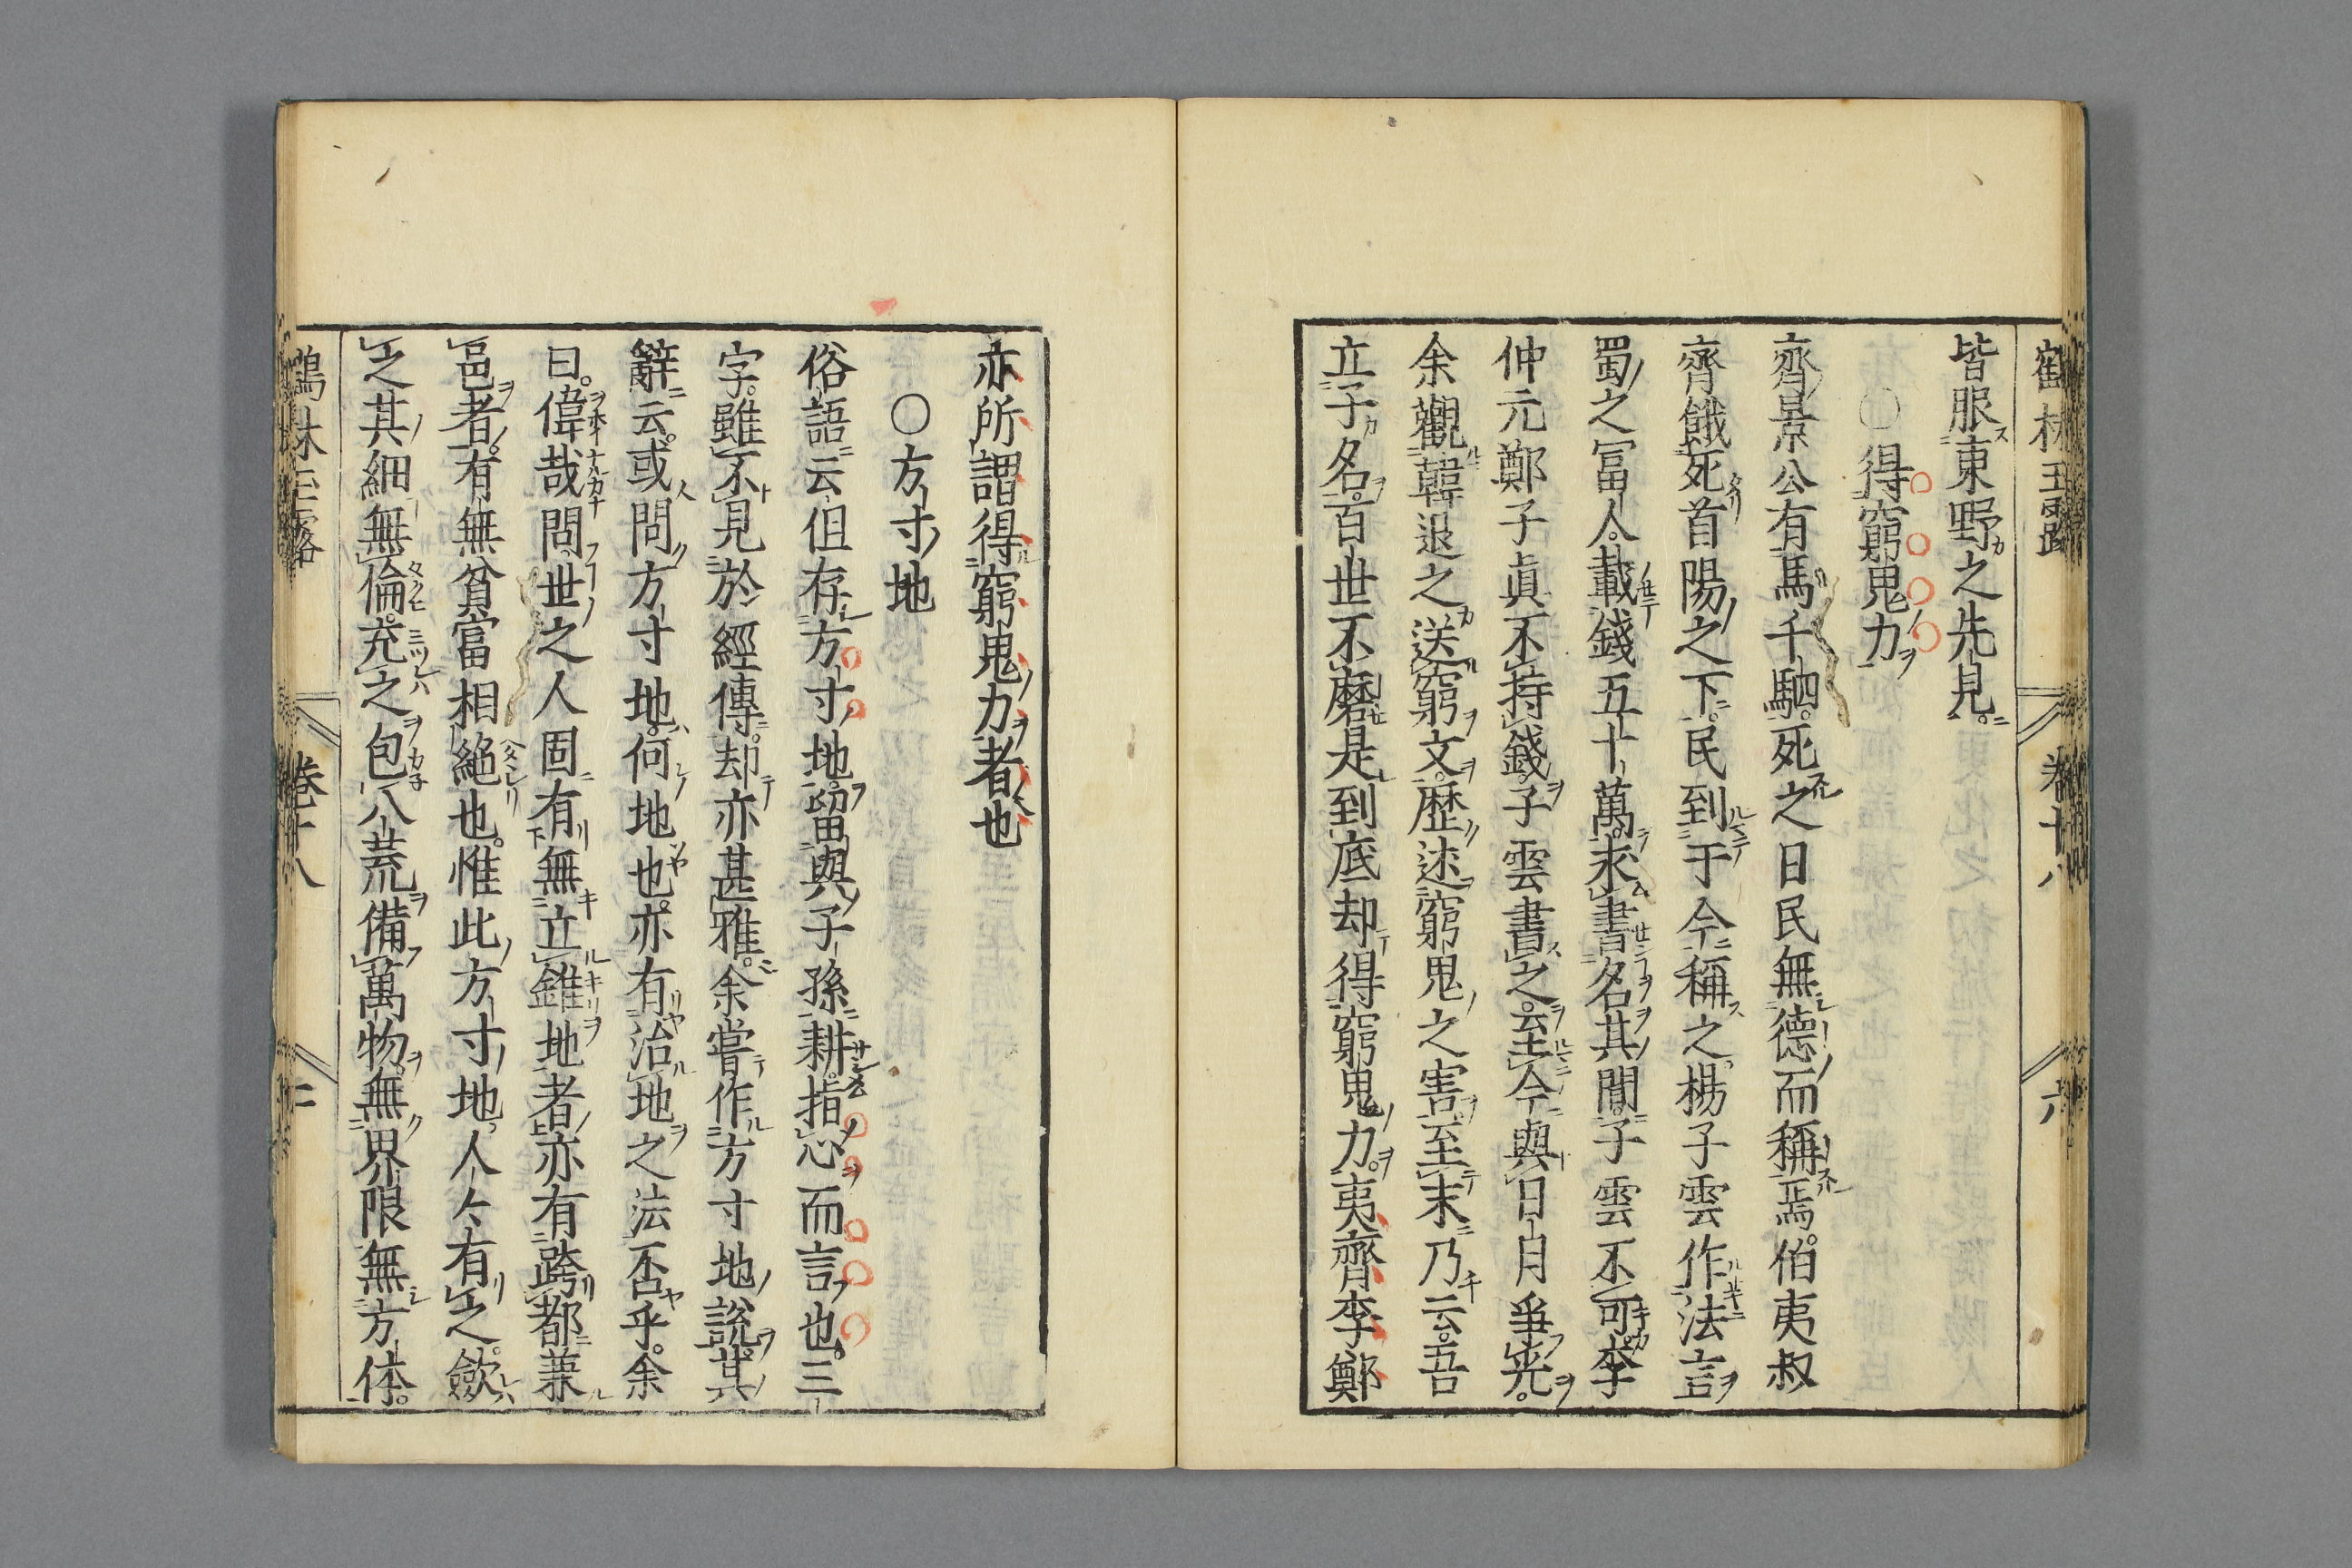 鶴林玉露 卷十八 六
皆服東野之先見
○得窮鬼力
齊景公有馬千駟死之日民無德而稱焉伯夷叔
齊餓死首陽之下民到于今稱之楊子雲作法言
蜀之冨人載錢五十萬求書名其間子雲不可李
仲元鄭子真不持錢子雲書之至今與日月爭光
余觀韓退之送窮文歷述窮鬼之害至末乃云吾
立子名百世不磨是到底却得窮鬼力夷齊李鄭
亦所謂得窮鬼力者也
○方寸地
俗語云但存方寸地留與子孫耕指心而言也三
字雖不見於經傳却亦甚雅余嘗作方寸地說其
辭云或問方寸地何地也亦有治地之法否乎余
曰偉哉問世之人固有無立錐地者亦有跨都兼
邑者有無貧富相絕也惟此方寸地人々有之歛
之其細無倫充之包八荒備萬物無界限無方体
鶴林玉露 卷十八